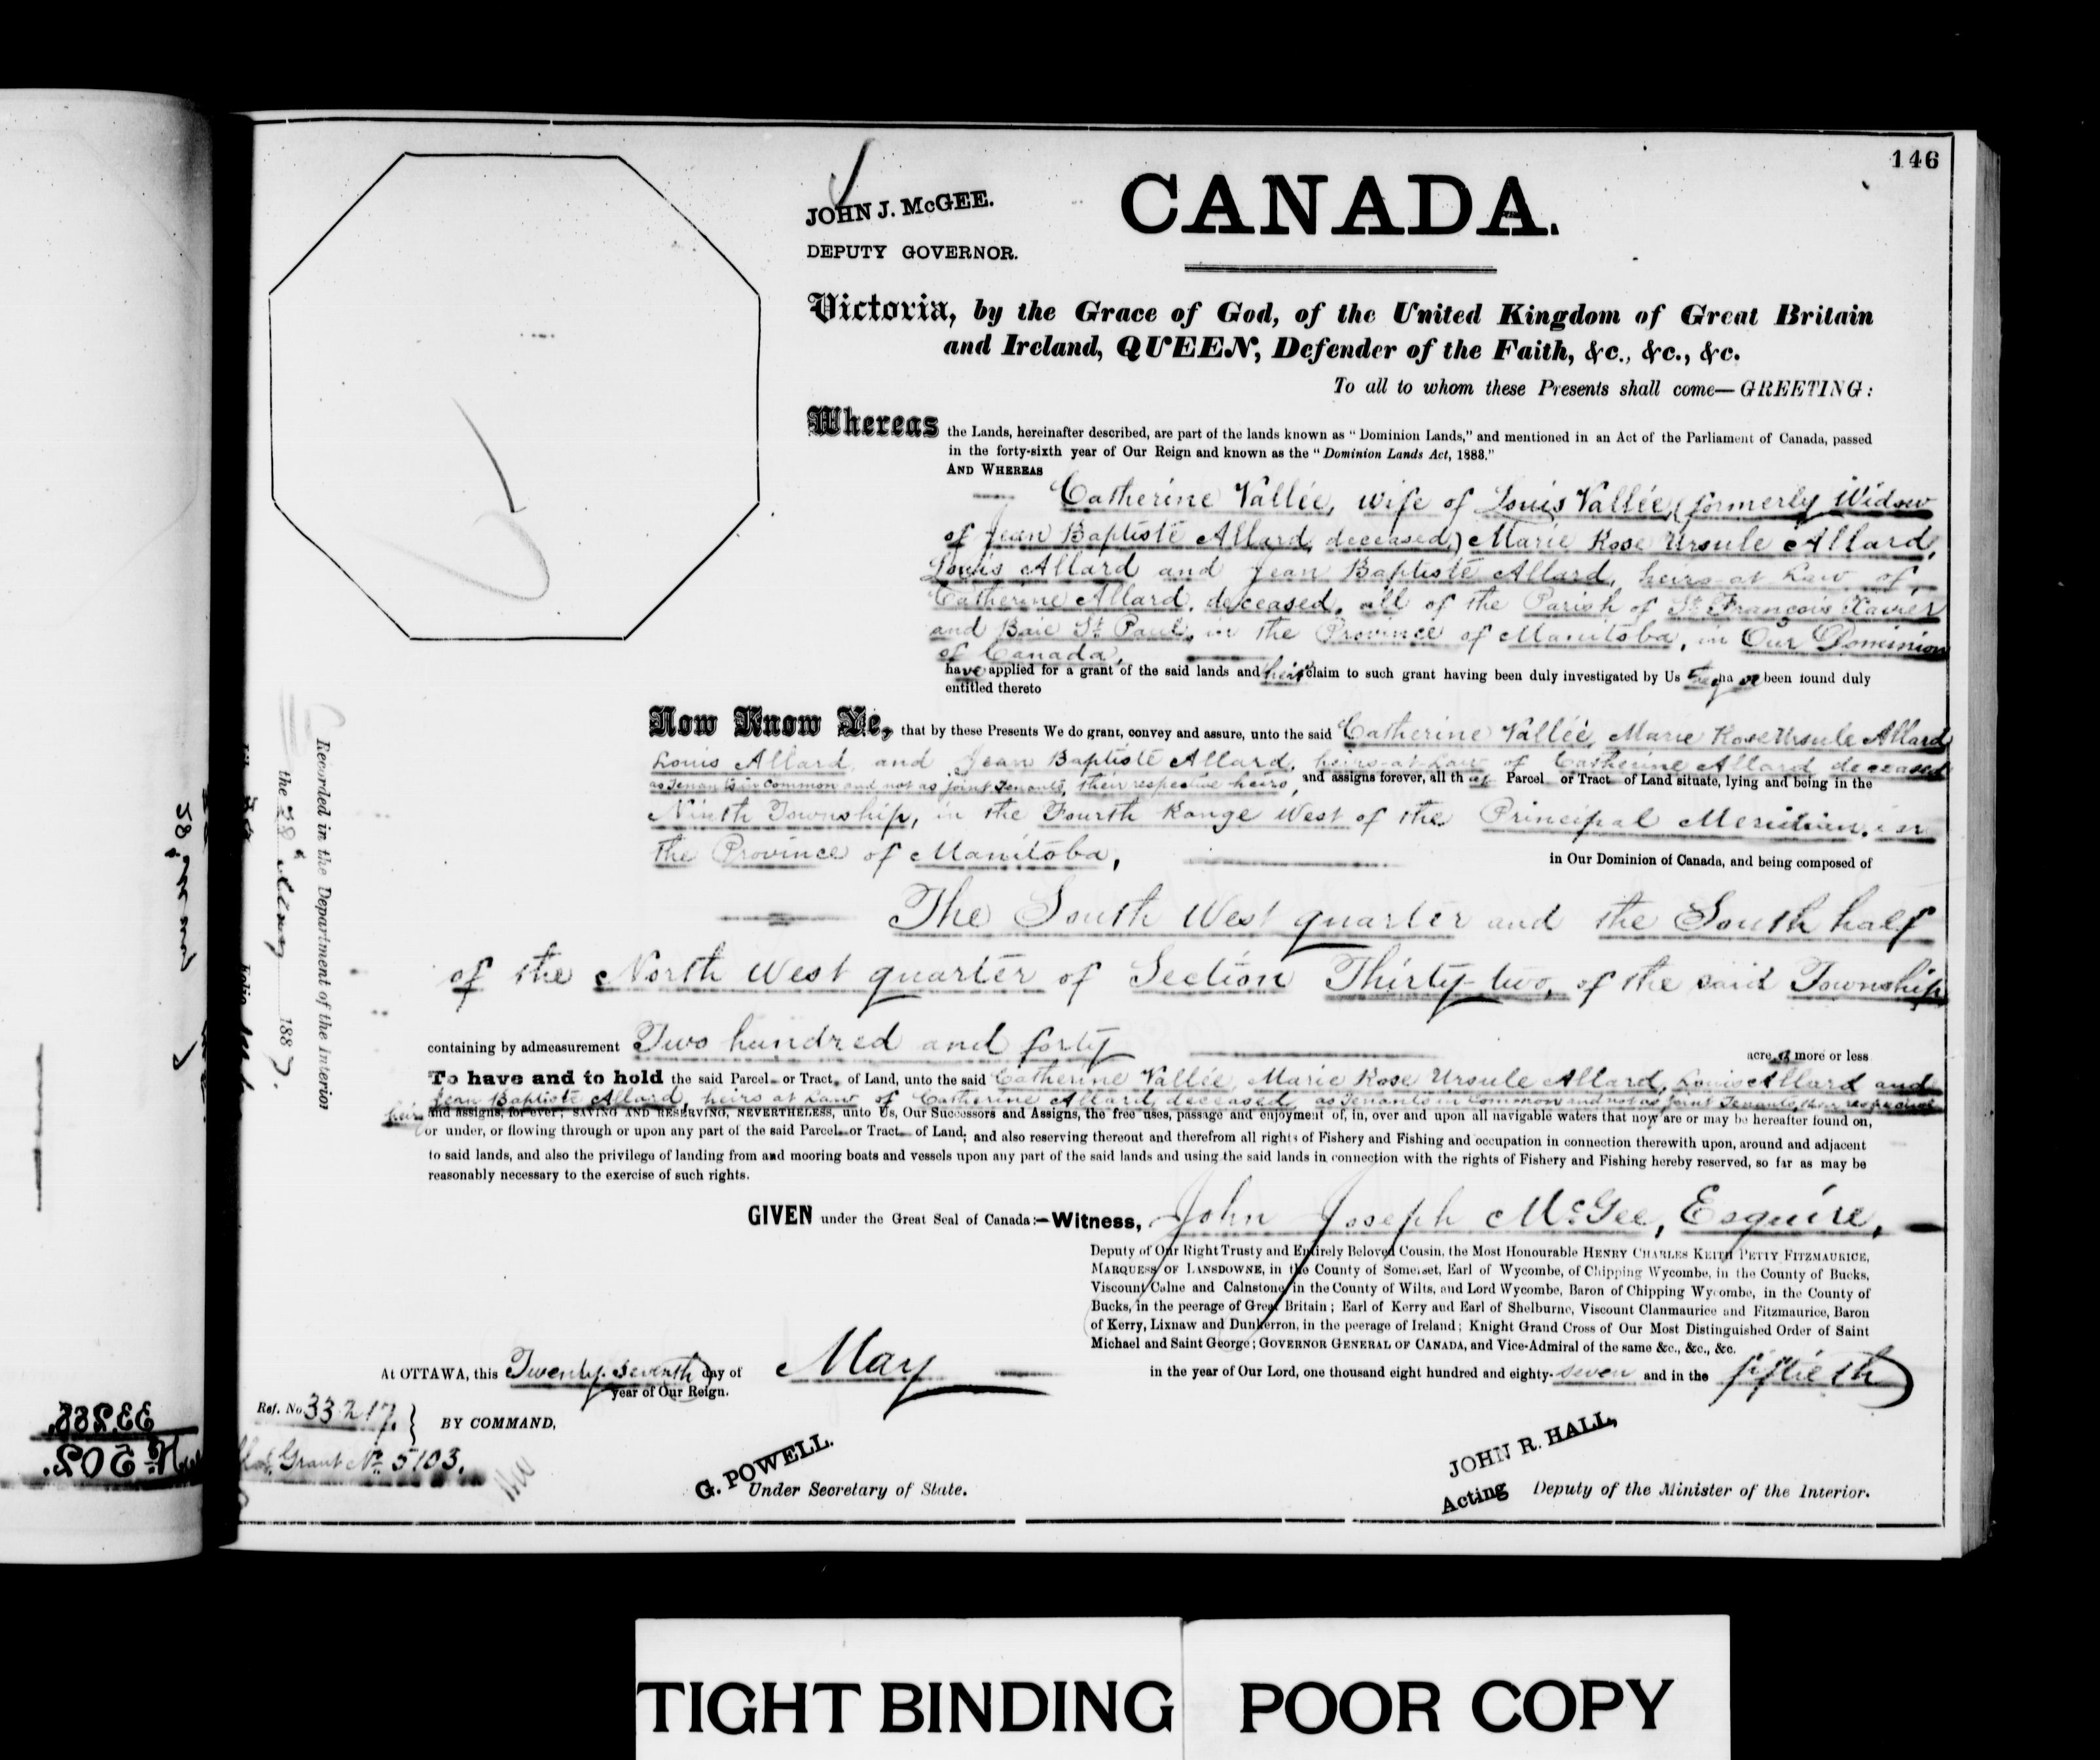 146
JOHN J. McGEE.
DEPUTY GOVERNOR.
CANADA.
Victoria, by the Grace of God, of the United Kingdom of Great Britain
and Ireland, QUEEN, Defender of the Faith, &c., &c., &c.
To all to whom these Presents shall come—GREETING:
Whereas the Lands, hereinafter described, are part of the lands known as "Dominion Lands," and mentioned in an Act of the Parliament of Canada, passed
in the forty-sixth year of Our Reign and known as the "Dominion Lands Act, 1883."
AND WHEREAS
Catherine Vallée, wife of Louis Vallée, (formerly Widow
of Jean Baptiste Allard, deceased,) Marie Rose Ursule Allard,
Louis Allard and Jean Baptiste Allard, heirs-at-Law of
Catherine Allard, deceased, all of the Parish of St. François Xavier
and Baie St. Paul, in the Province of Manitoba, in Our Dominion
of Canada,
have applied for a grant of the said lands and their claim to such grant having been duly investigated by Us they have been found duly
entitled thereto
Now Know Ye, that by these Presents We do grant, convey and assure, unto the said Catherine Vallée, Marie Rose Ursule Allard
Louis Allard and Jean Baptiste Allard, heirs-at-Law of Catherine Allard deceased
as Tenants in common and not as joint Tenants, their respective heirs, and assigns forever, all that Parcel or Tract of Land situate, lying and being in the
Ninth Township, in the Fourth Range West of the Principal Meridian, in
the Province of Manitoba, in Our Dominion of Canada, and being composed of
The South West quarter and the South half
of the North West quarter of Section Thirty-two, of the said Township
containing by admeasurement Two hundred and forty acres more or less
To have and to hold the said Parcel or Tract of Land, unto the said Catherine Vallée, Marie Rose Ursule Allard, Louis Allard and
Jean Baptiste Allard, heirs at Law of Catherine Allard, deceased, as Tenants in Common and not as joint Tenants, their respective
heirs and assigns, for ever; SAVING AND RESERVING, NEVERTHELESS, unto Us, Our Successors and Assigns, the free uses, passage and enjoyment of, in, over and upon all navigable waters that now are or may be hereafter found on,
or under, or flowing through or upon any part of the said Parcel or Tract of Land; and also reserving thereout and therefrom all rights of Fishery and Fishing and occupation in connection therewith upon, around and adjacent
to said lands, and also the privilege of landing from and mooring boats and vessels upon any part of the said lands and using the said lands in connection with the rights of Fishery and Fishing hereby reserved, so far as may be
reasonably necessary to the exercise of such rights.
GIVEN under the Great Seal of Canada:—Witness, John Joseph McGee, Esquire,
Deputy of Our Right Trusty and Entirely Beloved Cousin, the Most Honourable HENRY CHARLES KEITH PETTY FITZMAURICE,
MARQUESS OF LANSDOWNE, in the County of Somerset, Earl of Wycombe, of Chipping Wycombe, in the County of Bucks,
Viscount Calne and Calnstone in the County of Wilts, and Lord Wycombe, Baron of Chipping Wycombe, in the County of
Bucks, in the peerage of Great Britain; Earl of Kerry and Earl of Shelburne, Viscount Clanmaurice and Fitzmaurice, Baron
of Kerry, Lixnaw and Dunkerron, in the peerage of Ireland; Knight Grand Cross of Our Most Distinguished Order of Saint
Michael and Saint George; GOVERNOR GENERAL OF CANADA, and Vice-Admiral of the same &c., &c., &c.
At OTTAWA, this Twenty-Seventh day of May in the year of Our Lord, one thousand eight hundred and eighty-seven and in the fiftieth
year of Our Reign.
Ref. No 33217.
BY COMMAND,
Grant No. 5103.
G. POWELL.
Under Secretary of State.
JOHN R. HALL,
Acting Deputy of the Minister of the Interior.
Recorded in the Department of the Interior
the 28 1887.
TIGHT BINDING
POOR COPY